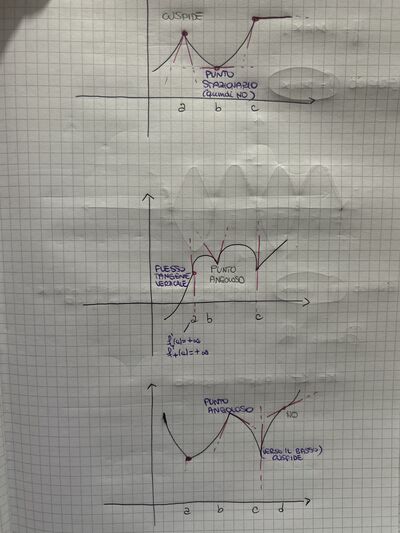 CUSPIDE
PUNTO
STAZIONARIO
(quindi NO)
a b c
FLESSO
TANGENTE
VERTICALE
PUNTO
ANGOLOSO
a b c
f'-(a)=+∞
f'+(a)=+∞
PUNTO
ANGOLOSO
NO
VERSO IL BASSO)
CUSPIDE
a b c d